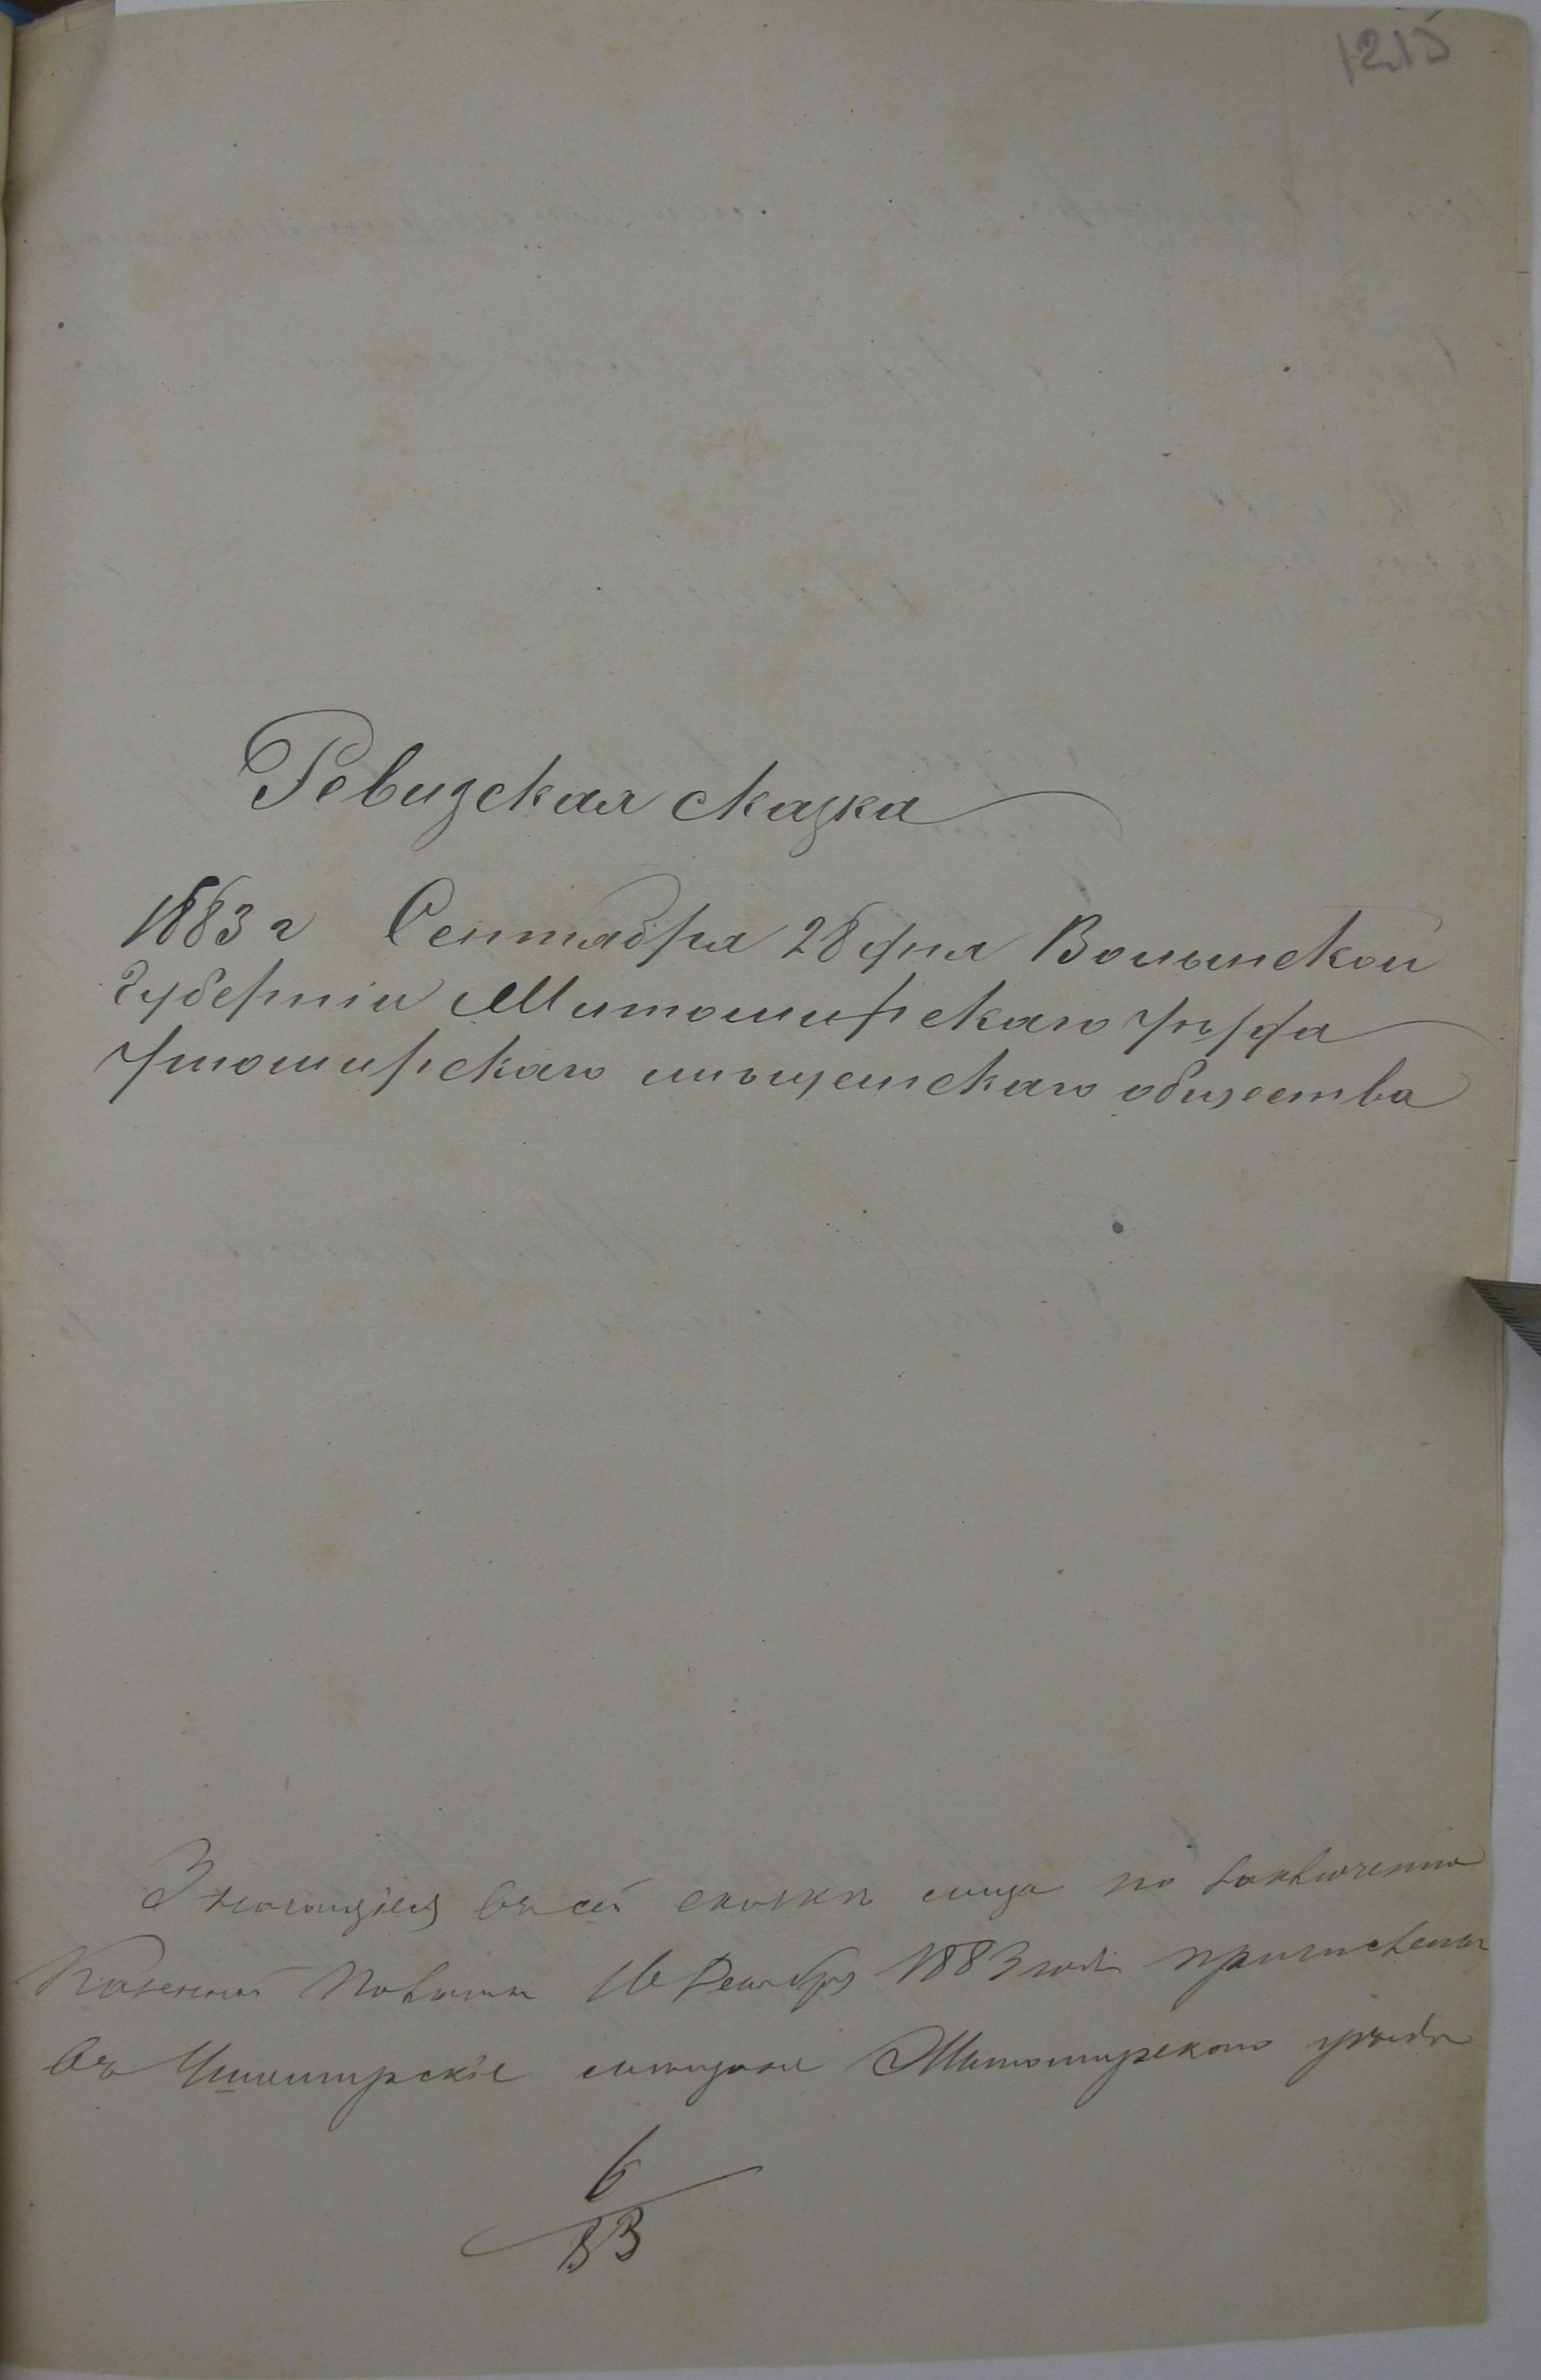 1215
Ревизская сказка
1883 г Сентября 28 дня Волынской
Губерніи Житомирскаго уѣзда
Ушомирскаго мѣщанскаго общества
Значащіеся въ сей сказкѣ лица по заключенію
Казенной Палаты 16 Декабря 1883 года причислены
въ Ушомирскіе мѣщане Житомирскаго уѣзда
6
83